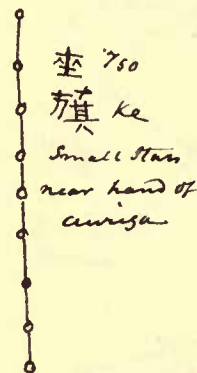 坐 Tso
旗 Ke
Small Stars
near hand of
auriga